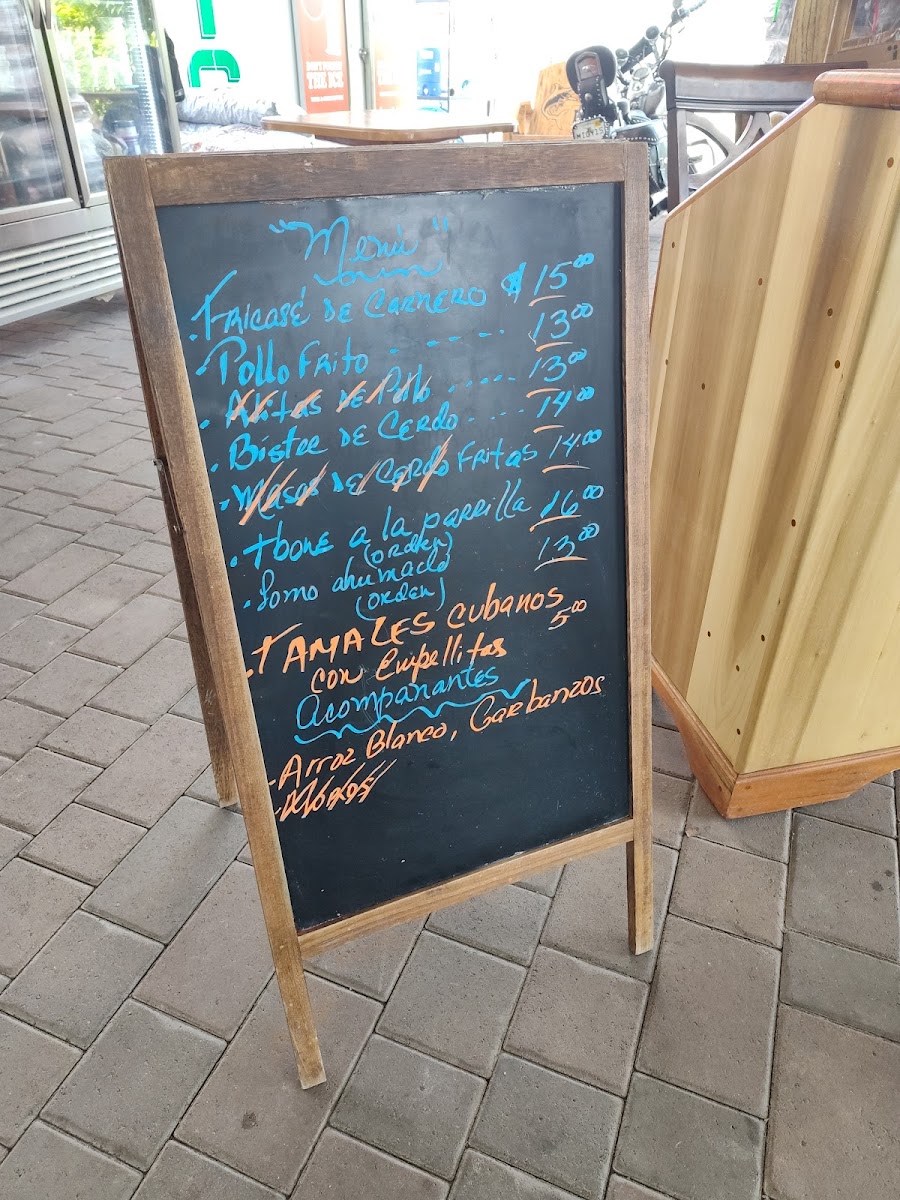 "Menú"
. Fricasé de Carnero $ 15.00
. Pollo Frito - - - - - 13.00
. Alitas de Pollo ..... 13.00
. Bistec de Cerdo .... 14.00
. Masas de Cerdo Fritas 14.00
. Tbone a la parrilla 16.00
(orden)
. Lomo ahumado 13.00
(orden)
. Tamales Cubanos
con Empellitas 5.00
Acompañantes
- Arroz Blanco, Garbanzos